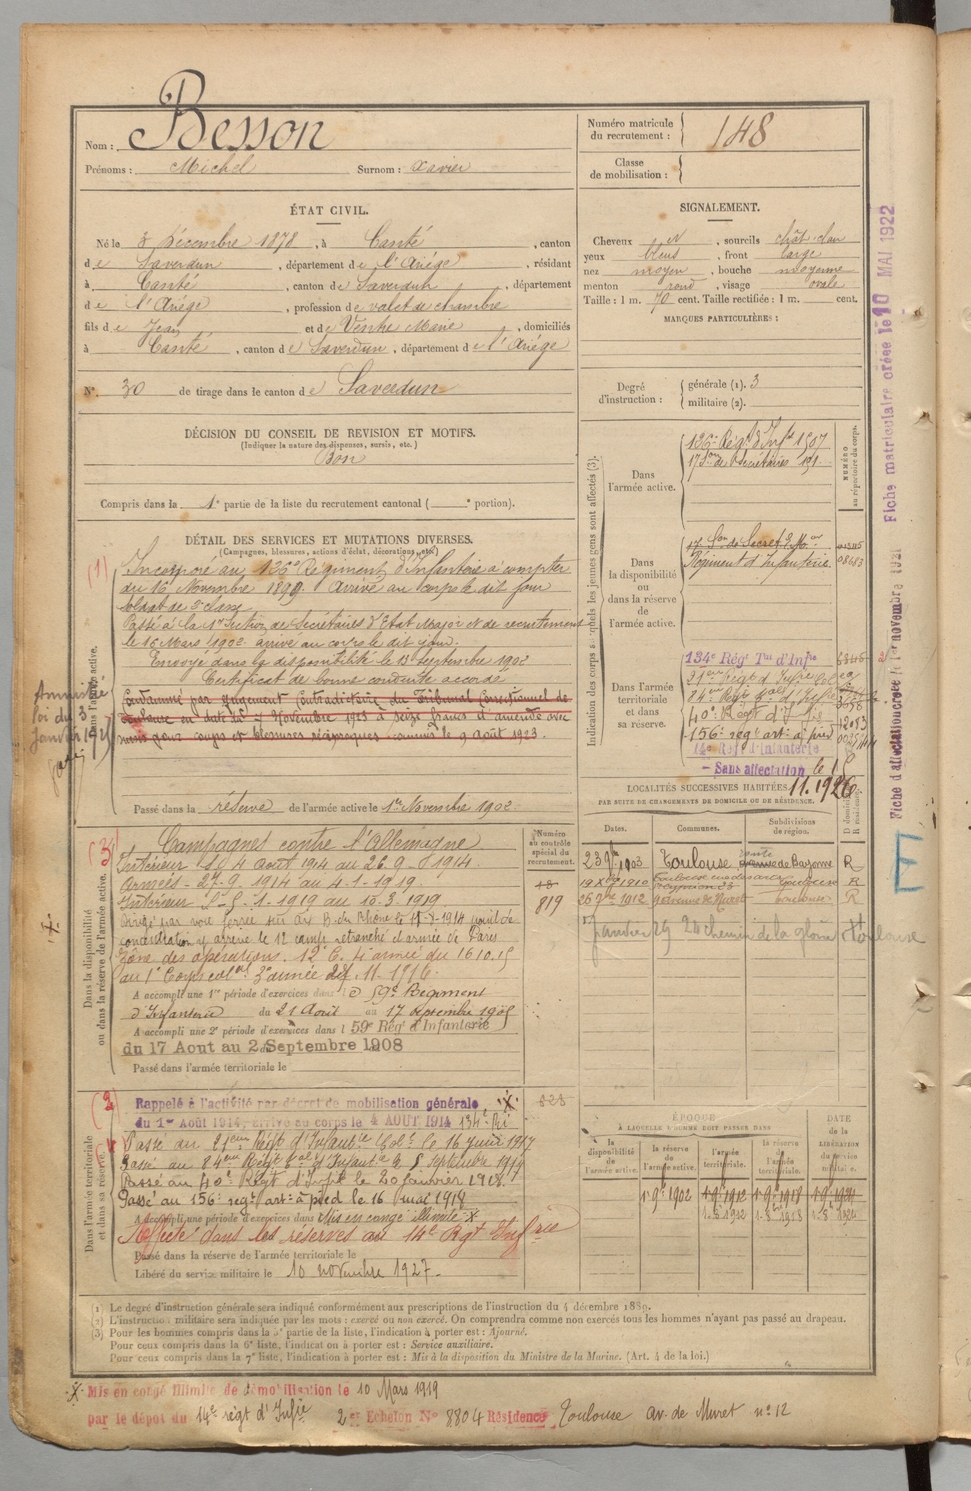 Nom : Besson
Prénoms : Michel Surnom : Xavier
Numéro matricule du recrutement : 148
Classe de mobilisation :
ÉTAT CIVIL.
Né le 3 Décembre 1878, à Canté, canton
de Saverdun, département de l'Ariége, résidant
à Canté, canton de Saverdun, département
de l'Ariége, profession de valet de chambre
fils de Jean et de Ventre Marie, domiciliés
à Canté, canton de Saverdun, département de l'Ariége
N° 30 de tirage dans le canton de Saverdun
SIGNALEMENT.
Cheveux et, sourcils chât-clair
yeux bleus, front large
nez moyen, bouche moyenne
menton rond, visage ovale
Taille : 1 m. 70 cent. Taille rectifiée : 1 m. cent.
MARQUES PARTICULIÈRES :
Degré d'instruction : générale (1). 3
militaire (2).
DÉCISION DU CONSEIL DE REVISION ET MOTIFS.
(Indiquer la nature des dispenses, sursis, etc.)
Bon
Compris dans la 1e partie de la liste du recrutement cantonal ( e portion).
DÉTAIL DES SERVICES ET MUTATIONS DIVERSES.
(Campagnes, blessures, actions d'éclat, décorations, etc.)
(1)
Dans l'armée active.
Incorporé au 126e Régiment d'Infanterie à compter
du 16 Novembre 1899. Arrivé au corps le dit jour
soldat de 2e classe
Passé à la 17e section de Secrétaires d'Etat Major et de recrutement
le 15 Mars 1902 arrivé au corps le dit jour.
Envoyé dans la disponibilité le 13 Septembre 1902
Certificat de bonne conduite accordé
Condamné par jugement contradictoire du Tribunal Correctionnel de
Toulouse en date du Novembre 1923 à seize francs d'amende avec
sursis pour coups et blessures réciproques commis le 9 août 1923.
Amnistié
loi du 3
Janvier 1925
Passé dans la réserve de l'armée active le 1er Novembre 1902
Indication des corps auxquels les jeunes gens sont affectés (3).
NUMÉRO au répertoire du corps.
Dans l'armée active.
126e Régt d'Infie 1507
17 Son de Secrétaires 191
Dans la disponibilité ou dans la réserve de l'armée active.
17 Son de Secret. d'E. M. or
Régiment d'Infanterie
Dans l'armée territoriale et dans sa réserve.
134e Régt Tal d'Infie
21eme Regt d'Infie Col
84eme Régt d'Infie
40e Régt d'Infie
156e régt art à pied
14e Régt d'Infanterie
– Sans affectation le 1
11.1926
Fiche matriculaire créée le 10 MAI 1922
Fiche d'affectation créée le 1er novembre 1921
LOCALITÉS SUCCESSIVES HABITÉES
PAR SUITE DE CHANGEMENTS DE DOMICILE OU DE RÉSIDENCE.
Dates. Communes. Subdivisions de région. D domicile R résidence.
23 9bre 1903 Toulouse route de Bayonne R
19 Xbre 1910 Toulouse R
26 9bre 1912 9 avenue de Muret Toulouse R
Janvier 29 24 chemin de la gloire Toulouse
Dans la disponibilité ou dans la réserve de l'armée active.
(3)
Numéro au contrôle spécial du recrutement.
819
Campagnes contre l'Allemagne
Intérieur du 4 août 1914 au 26.9.1914.
Armées – 27.9.1914 au 4-1-1919.
Intérieur – 5.1.1919 au 10.3.1919.
Dirigé par voie ferrée sur Aix B. du Rhône le 17-8-1914 point de
concentration y arrive le 12 camp retranché d'armée de Paris
Zône des opérations. 12 C. 4 armée du 16 10.15
au 1er Corps col. 3e armée 11.1916
A accompli une 1re période d'exercices dans le 59e Régiment
d'Infanterie du 21 Août au 17 septembre 1905
A accompli une 2e période d'exercices dans l 59e Régt d'Infanterie
du 17 Aout au 2 Septembre 1908
Passé dans l'armée territoriale le
(2)
Dans l'armée territoriale et dans sa réserve.
Rappelé à l'activité par décret de mobilisation générale X
du 1er Août 1914, arrivé au corps le 4 AOUT 1914 134e Ri
Passé au 21eme Régt d'Infantie Cole le 16 Juin 1917
Passé au 84eme Régt d'Infantie le 8 septembre 1917
Passé au 40e Régt d'Infie le 20 janvier 1918
Passé au 156e régt art à pied le 16 mai 1918
A accompli une période d'exercices dans Mis en congé illimité X
Affecté dans les réserves au 14e Rgt Infrie
Passé dans la réserve de l'armée territoriale le
Libéré du service militaire le 10 novembre 1927.
ÉPOQUE
À LAQUELLE L'HOMME DOIT PASSER DANS
la disponibilité de l'armée active. la réserve de l'armée active. l'armée territoriale. la réserve de l'armée territoriale. DATE de la LIBÉRATION du service militaire.
1-9e 1902 1-9e 1912 1-9e 1918 1-9e 1924
(1) Le degré d'instruction générale sera indiqué conformément aux prescriptions de l'instruction du 4 décembre 1889.
(2) L'instruction militaire sera indiquée par les mots : exercé ou non exercé. On comprendra comme non exercés tous les hommes n'ayant pas passé au drapeau.
(3) Pour les hommes compris dans la 5e partie de la liste, l'indication à porter est : Ajourné.
Pour ceux compris dans la 6e liste, l'indication à porter est : Service auxiliaire.
Pour ceux compris dans la 7e liste, l'indication à porter est : Mis à la disposition du Ministre de la Marine. (Art. 4 de la loi.)
X Mis en congé illimité de démobilisation le 10 Mars 1919
par le dépot du 14e régt d'Infie 2e Echelon N° 8804 Résidence Toulouse av. de Muret n° 12